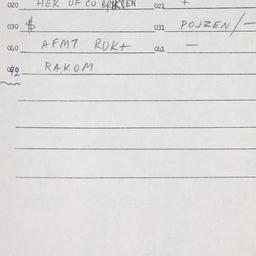 020 HER UF CU BRKSEN 021 +
030 $ 031 POJZEN/-
040 AFMT RUK+ 041 -
042 RAKOM